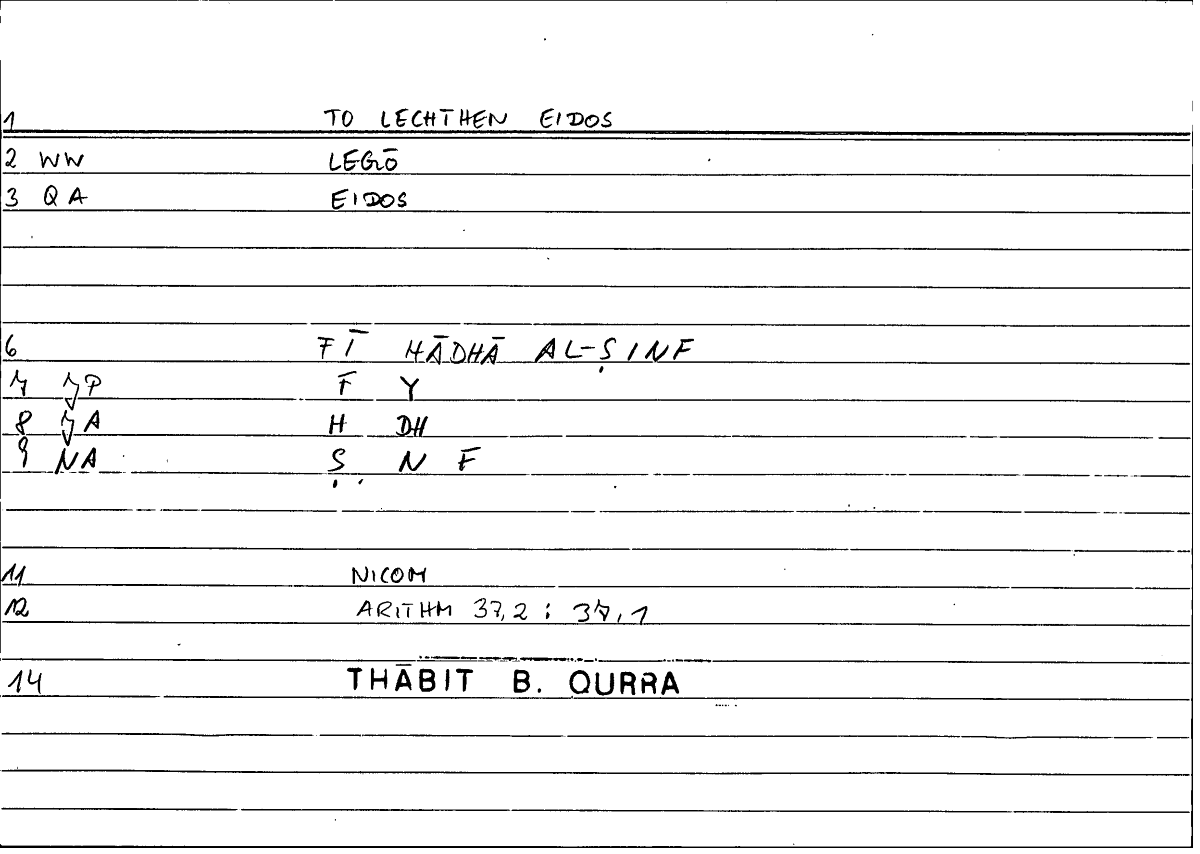 1 TO LECHTHEN EIDOS
2 WW LEGŌ
3 QA EIDOS
6 FĪ HĀDHĀ AL-ṢINF
7 JP F Y
8 JA H DH
9 NA Ṣ N F
11 NICOM
12 ARITHM 37,2 : 37,1
14 THĀBIT B. QURRA